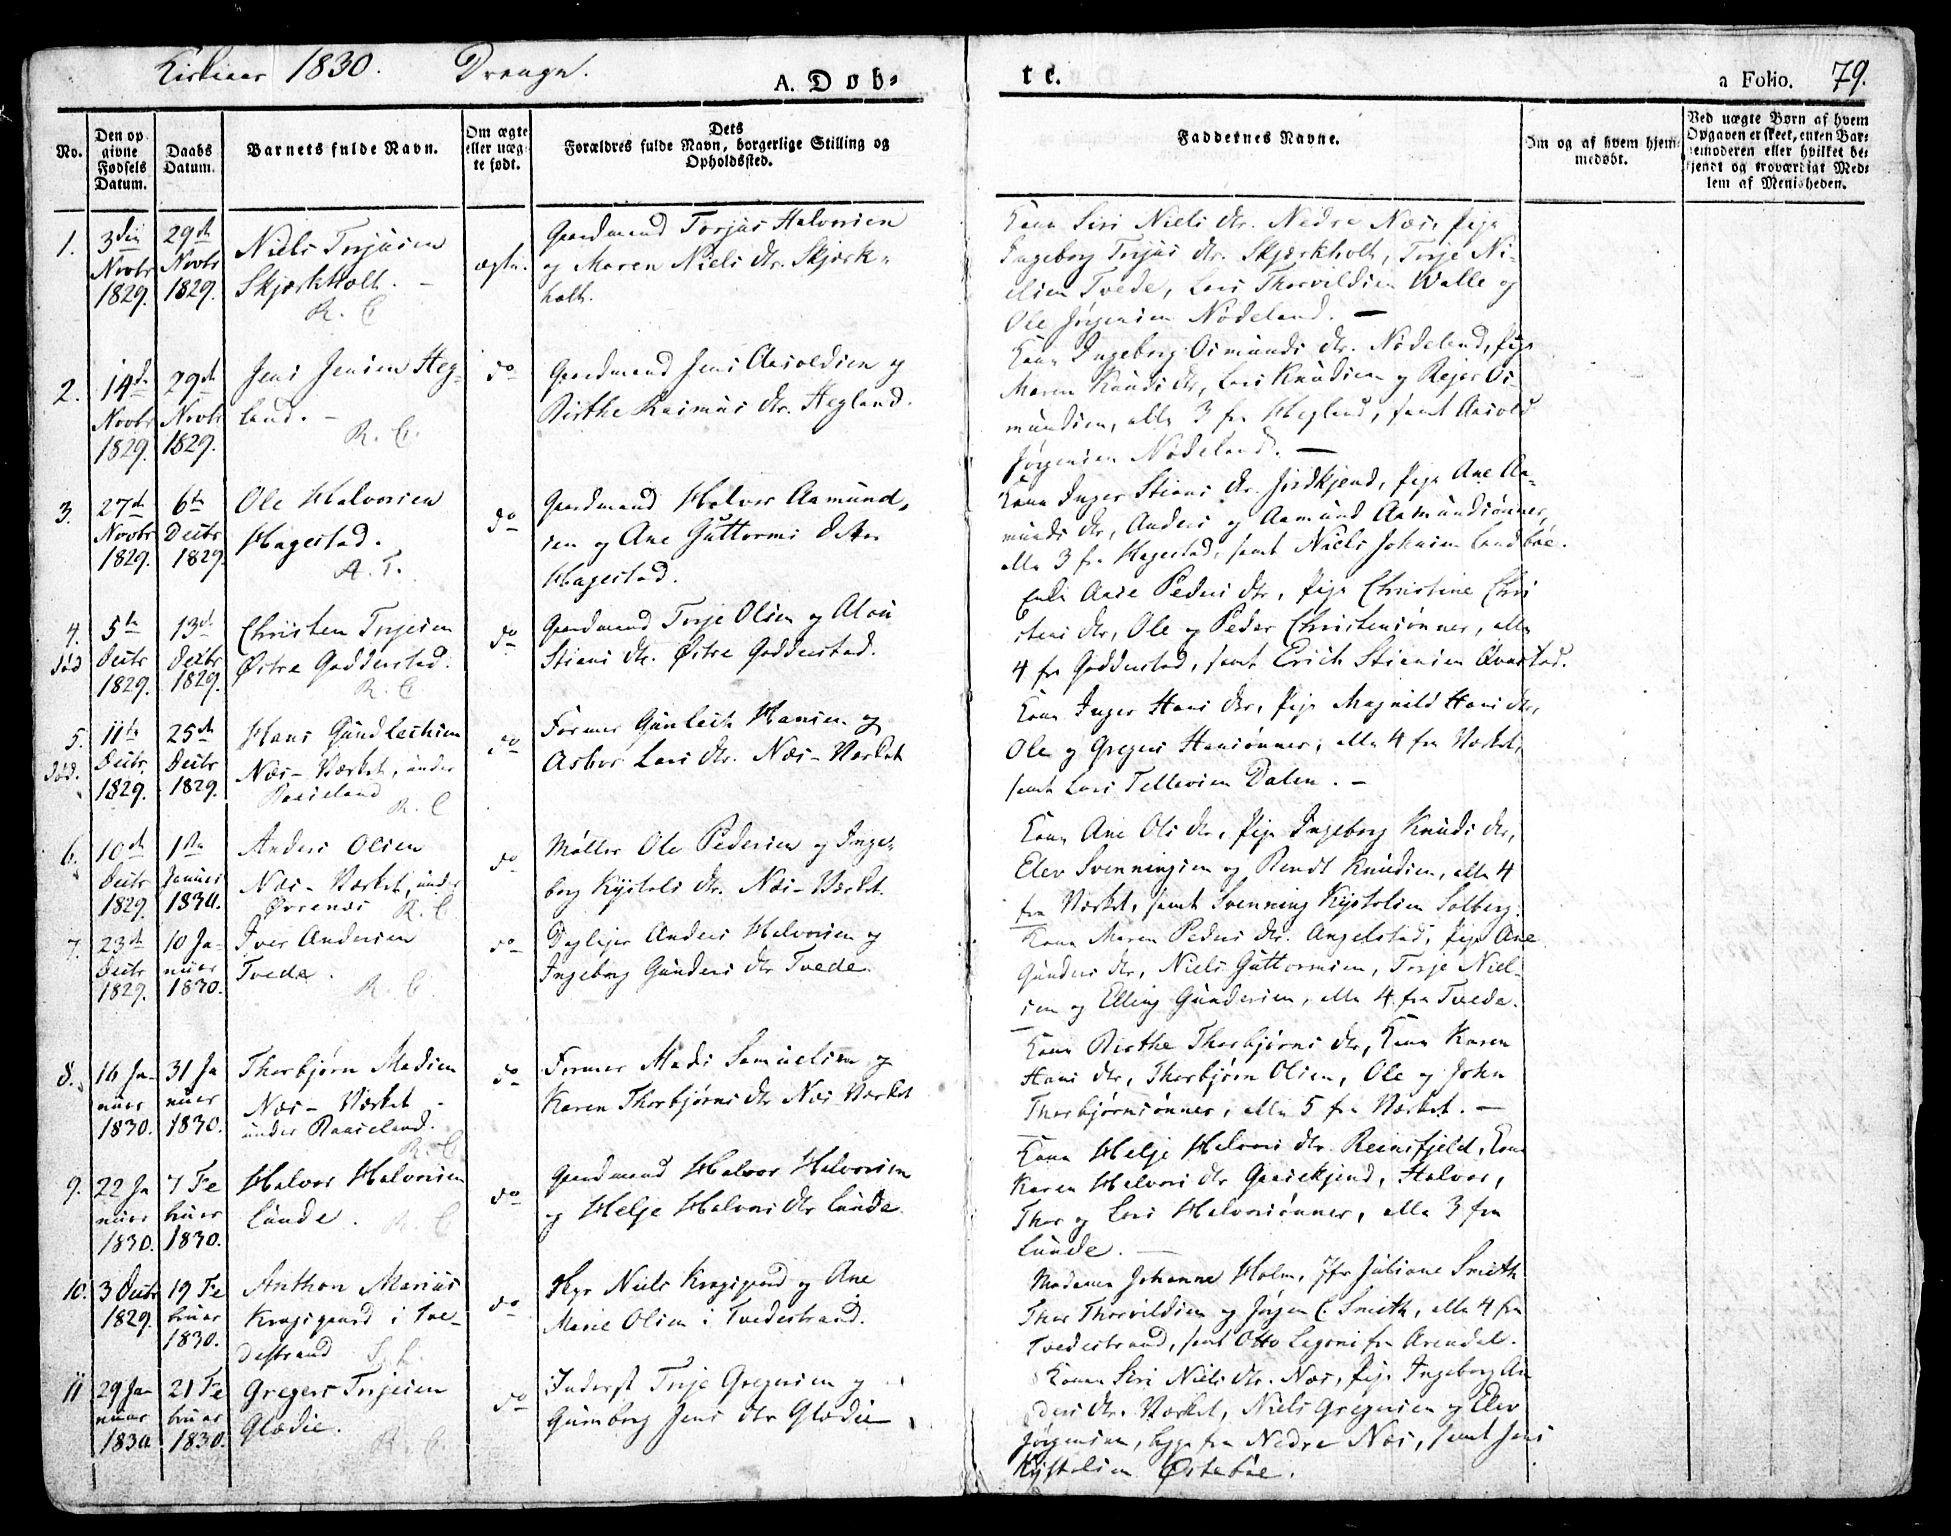 Kirkeaar 1830. Drenge.
A. Døb-
te.
a Folio. 79.
No.
Den opgivne Fødsels Datum.
Daabs Datum.
Barnets fulde Navn.
Om ægte eller uægte født.
Dets Forældres fulde Navn, borgerlige Stilling og Opholdssted.
Faddernes Navne.
Om og af hvem hjemmedøbt.
Ved uægte Børn af hvem Opgaven er skeet, enten Barnemoderen eller hvilket bekjendt og troværdigt Medlem af Menigheden.
1.
3die Novbr 1829.
29de Novbr 1829.
Niels Terjesen
Skjærkholt. -
R. C
ægte.
Gaardmand Terjus Halvorsen
og Maren Niels dtr. Skjærk-
holt.
Kone Siri Niels dtr. Nedre Næs, pige
Ingeborg Terjus dtr. Skjærkholt, Terje Ni-
elsen Tvede, Lars Thorvildsen Walle og
Ole Jørgensen Nødeland. -
2.
14de Novbr 1829.
29de Novbr 1829.
Jens Jensen Heg-
land. -
R. C.
do
Gaardmand Jens Aasoldsen og
Birthe Rasmus dtr. Hegland.
Kone Ingeborg Osmunds dtr. Nødeland, pige
Maren Knuds dtr, Lars Knudsen og Rejer Os-
mundsen, alle 3 fra Hegland, samt Aasold
Jørgensen Nødeland. -
3.
27de Novbr 1829.
6te Decbr 1829
Ole Halvorsen
Hagestad.
A. T.
do
Gaardmand Halvor Aamund-
sen og Ane Guttorms Datter
Hagestad.
Kone Inger Stians dtr. Jordkjend, pige Ane Aa-
munds dtr, Anders og Aamund Aamundsønner,
alle 3 fra Hagestad, samt Niels Johnsen Landbøe.
4.
død
5te Decbr 1829.
13de Decbr 1829.
Christen Terjesen
Østre Godderstad.
R. C
do
Gaardmand Terje Olsen og
Stians dtr. Østre Godderstad.
Enke Aase Peders dtr, pige Christine Chri
stens dtr, Ole og Peder Christensønner, alle
4 fra Godderstad, samt Erich Stiansen
5.
død.
11te Decbr 1829.
25de Decbr 1829.
Hans Gundlechsen
Næs-Værket, under
Raaseland
R. C
do
Former Gunleik Hansen og
Asbor Lars dtr. Næs-Værket
Kone Inger Hans dtr, pige Magnild Hans dtr,
Ole og Gregers Hansønner, alle 4 fra Værket,
samt Lars Tellevsen Dalen. -
6.
10de Decbr 1829.
1ste Januar 1830.
Anders Olsen
Næs-Værket, under
Øvrenæs R. C
do
Møller Ole Pedersen og Inge-
borg Kjstols dtr. Næs-Værket.
Kone Ane Ols dtr, pige Ingeborg Knuds dtr,
Elev Svenningsen og Bendt Knudsen, alle 4
fra Værket, samt Svenning Kjstolsen Solberg.
7.
23de Decbr 1829.
10 Januar 1830.
Iver Andersen
Tvede.
R. C
do
Daglejer Anders Halvorsen og
Ingeborg Gunders dtr Tvede.
Kone Maren Peders dtr. Angelstad, pige Ane
Gunders dtr, Niels Guttormsen, Terje Niel-
sen og Elling Gundersen, alle 4 fra Tvede.
8.
16 Januar 1830.
31 Januar 1830.
Thorbjørn Madsen
Næs-Værket
under Raaseland.
R. C
do
Former Mads Samuelsen og
Karen Thorbjørns dtr Næs Værket
Kone Birthe Thorbjørns dtr, Kone Karen
Hans dtr, Thorbjørn Olsen, Ole og John
Thorbjørnsønner, alle 5 fra Værket. -
9.
22 Januar 1830.
7 Februar 1830.
Halvor Halvorsen
Lunde. R. C
do
Gaardmand Halvor Halvorsen
og Helje Halvors dtr Lunde
Kone Helje Halvors dtr. Reinsfjeld, Kone
Karen Halvors dtr Gaasekjend, Halvor,
Thor og Lars Halvorsønner, alle 3 fra
Lunde. -
10.
3 Decbr 1829.
19 Februar 1830.
Anthon Marius
Krogsgaard i Tve-
destrand
do
Hr Niels Krogsgaard og Ane
Marie Olsen i Tvedestrand.
Madame Johanne Holm, Jfr Juliane Smith
Thor Thorvildsen og Jørgen C. Smith, alle 4 fra
Tvedestrand, samt Otto Legoni fra Arendal.
11
29 Januar 1830
21 Februar 1830.
Gregers Terjesen
Glødie.
R. C.
do
Inderst Terje Gregersen og
Gunborg Jens dtr Glødie
Konen Siri Niels dtr. Næs, pige Ingeborg An
ders dtr. Værket, Niels Gregersen og Elev
Jørgensen, begge fra Nedre Næs, samt Jens
Kjstolsen Østebøe.